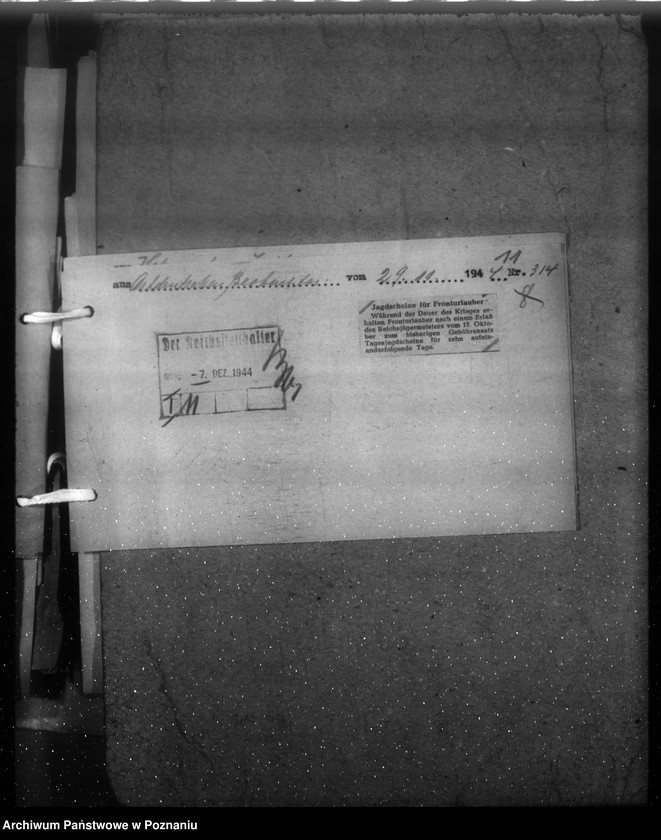 11
aus vom 29.11. 1944 Nr. 314
8
Jagdscheine für Fronturlauber
Während der Dauer des Krieges er-
halten Fronturlauber nach einem Erlaß
des Reichsjägermeisters vom 17. Okto-
ber zum bisherigen Gebührensatz
Tagesjagdscheine für zehn aufein-
anderfolgende Tage.
Der Reichsstatthalter
-7. DEZ. 1944
Archiwum Państwowe w Poznaniu